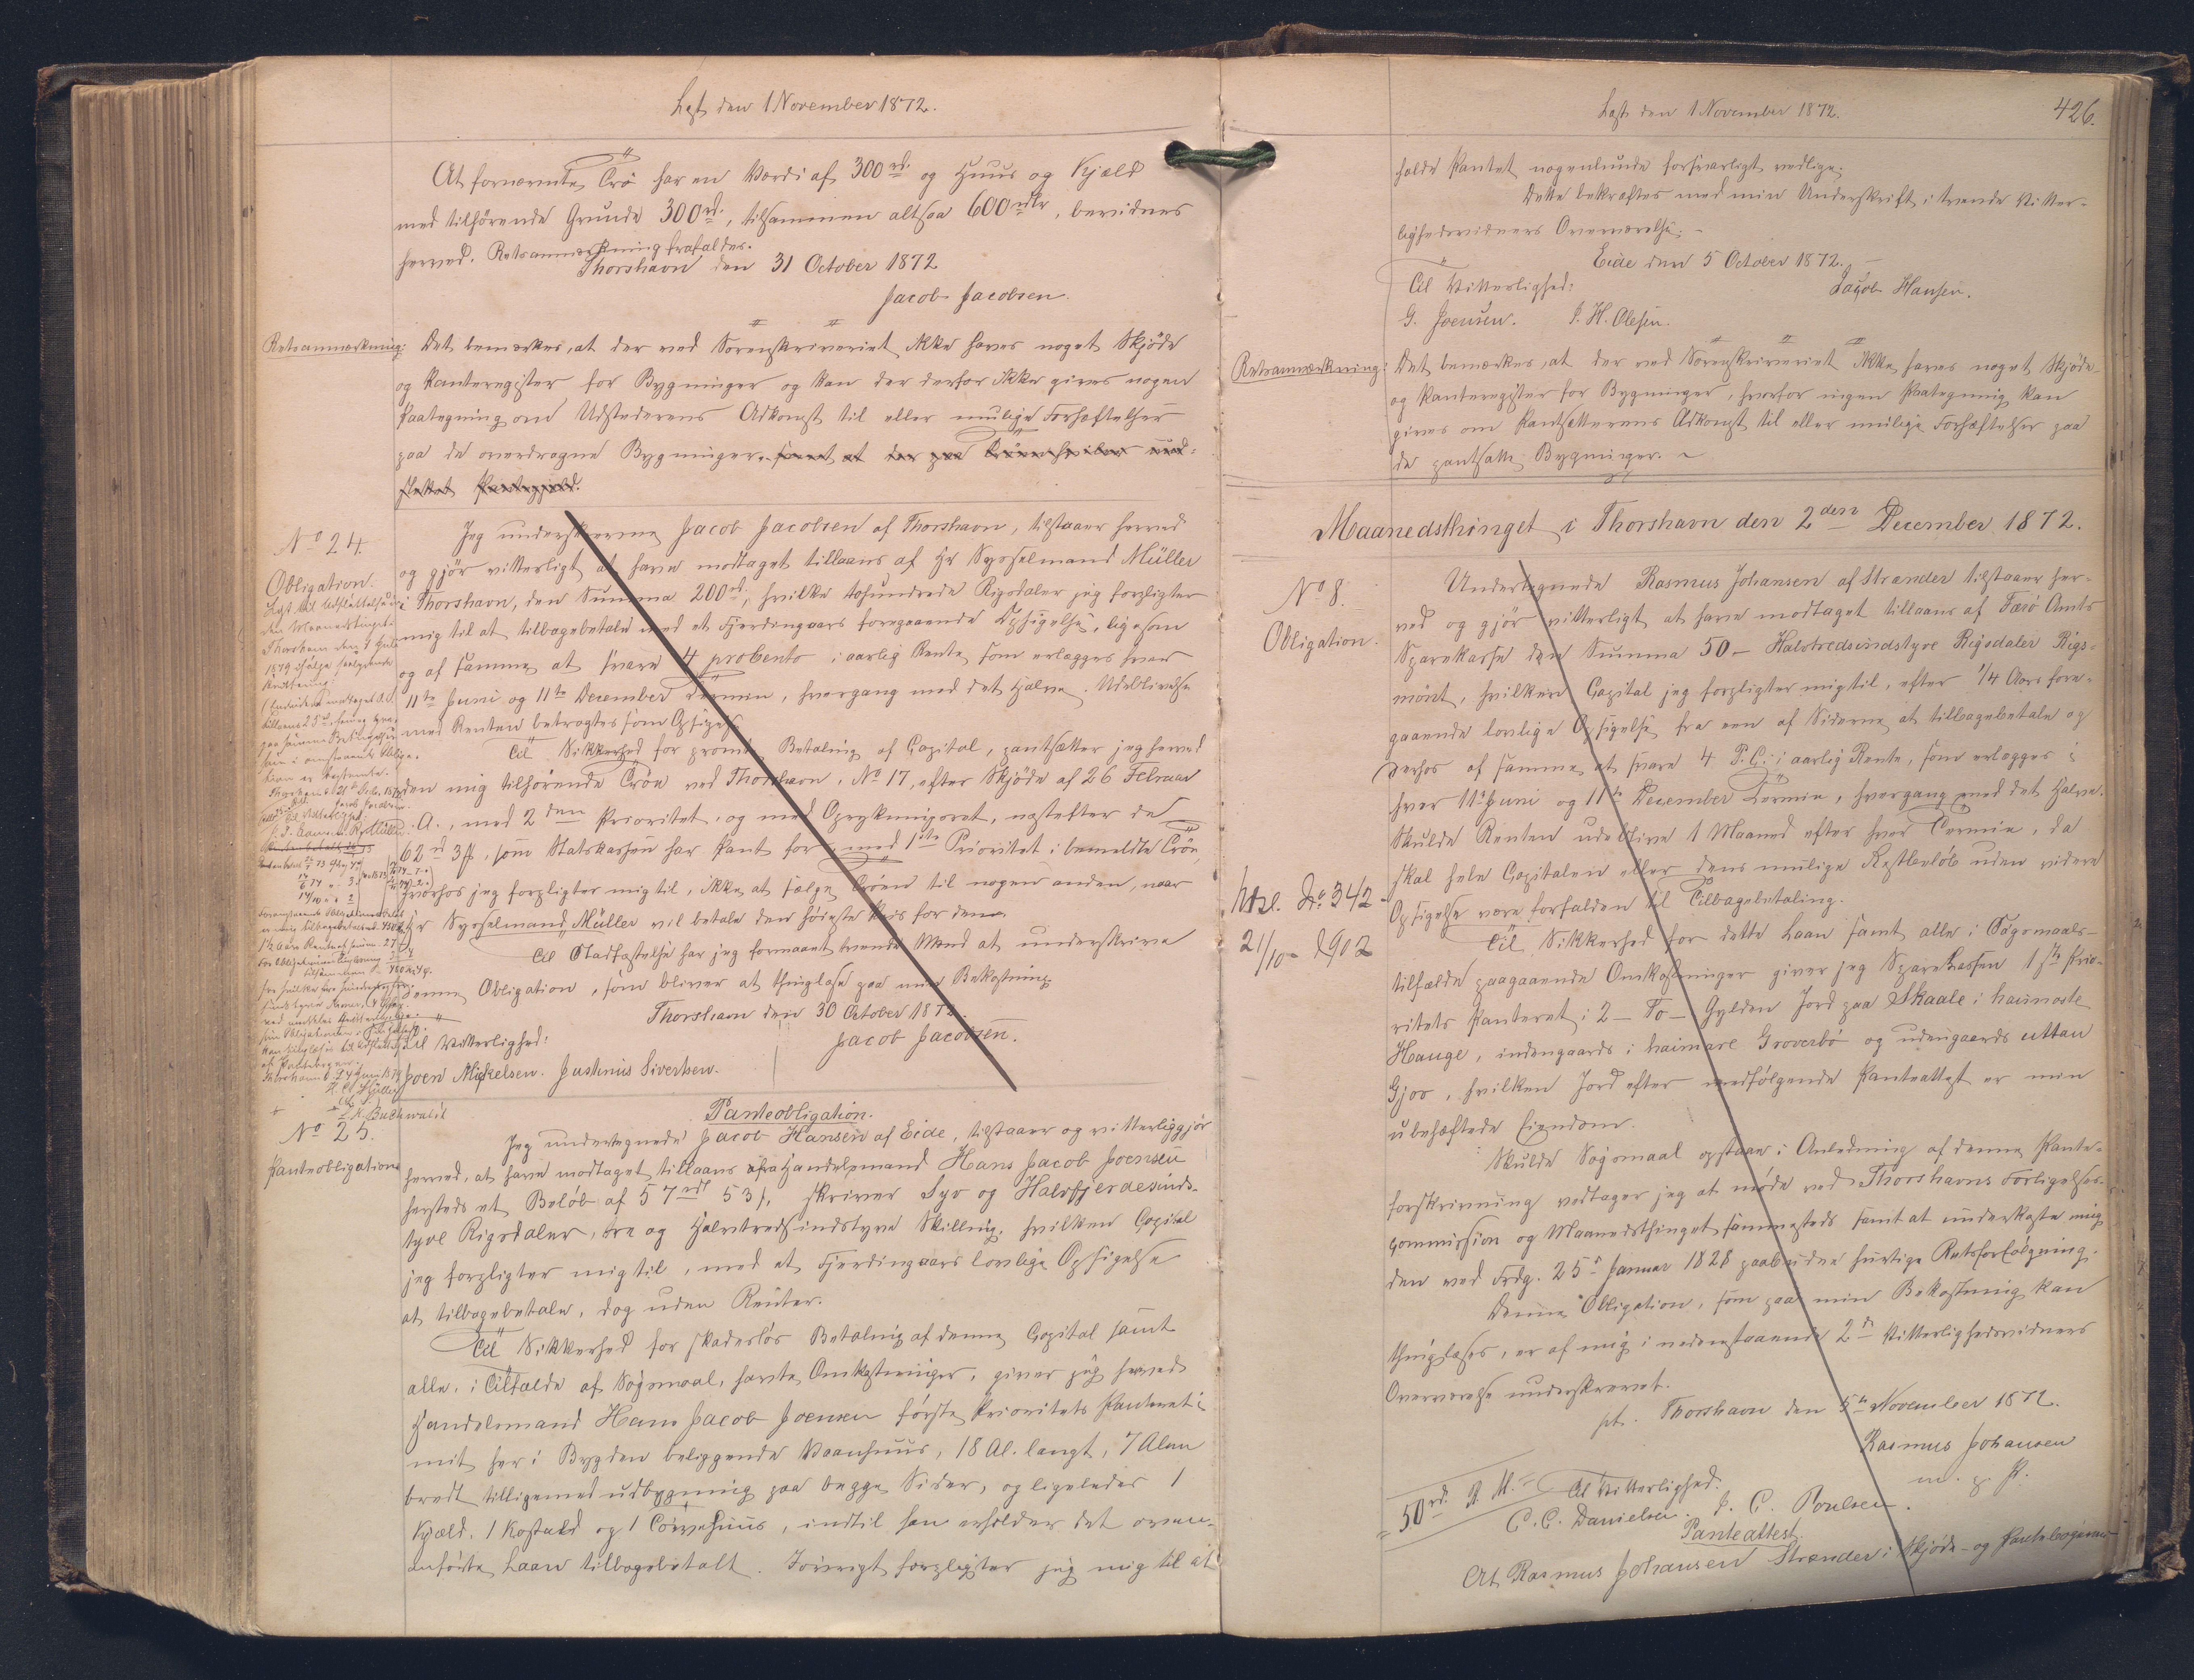 Læst den 1 November 1872.
At fornævnte Trö har en Værdi af 300 rd. og Huus og Kjæld
med tilhörende Grunde 300 rd., tilsammen altsaa 600 rdlr, bevidnes
herved. Retsanmærkning frafaldes.
Thorshavn den 31 October 1872
Jacob Jacobsen.
Retsanmærkning:
Det bemærkes, at der ved Sorenskriveriet ikke haves noget Skjöde
og Panteregister for Bygninger og kan der derfor ikke gives nogen
Paategning om Udstederens Adkomst til eller mulige Forhæftelser
paa de overdragne Bygninger.
No 24.
Obligation.
Jeg underskrevne Jacob Jacobsen af Thorshavn, tilstaaer herved
og gjör vitterligt at have modtaget tillaans af Hr Sysselmand Müller
i Thorshavn, den Summa 200 rd, hvilke tohundrede Rigsdaler jeg forpligter
mig til at tilbagebetale med et Fjerdingaars foregaaende Opsigelse, ligesom
og af samme at svare 4 procento i aarlig Rente, som erlægges hver
11te Juni og 11te December Termin, hvergang med det Halve. Udeblivelse
med Renten betragtes som Opsigelse.
Til Sikkerhed for promte Betaling af Capital, pantsætter jeg herved
den mig tilhörende Tröe ved Thorshavn, No 17, efter Skjöde af 26 Februar
d. A., med 2den Prioritet, og med Oprykningsret, næstefter de
62 rd 3 ß, som Statskassen har Pant for med 1ste Prioritet i bemeldte Tröe,
hvorhos jeg forpligter mig til, ikke at sælge Tröen til nogen anden, naar
Hr Sysselmand Müller vil betale den höieste Pris for den.
Til Stadfæstelse har jeg formaaet tvende Mænd at underskrive
denne Obligation, som bliver at thinglæse paa min Bekostning.
Thorshavn den 30 October 1872.
Jacob Jacobsen.
Til Vitterlighed:
Joen Mickelsen. Justinus Sivertsen.
No 25.
Panteobligation
Panteobligation.
Jeg undertegnede Jacob Hansen af Eide, tilstaaer og vitterliggjör
herved, at have modtaget tillaans af Handelsmand Hans Jacob Joensen
hersteds et Belöb af 57 rdl 53 ß, skriver Syv og Halvfjerdesinds-
tyve Rigsdaler, tre og Halvtredsindstyve Skilling, hvilken Capital
jeg forpligter mig til, med et Fjerdingaars lovlige Opsigelse
at tilbagebetale, dog uden Renter.
Til Sikkerhed for skadeslös Betaling af denne Capital samt
alle, i Tilfælde af Sögsmaal, havte Omkostninger, giver jeg herved
Handelsmand Hans Jacob Joensen förste Prioritets Panteret i
mit her i Bygden beliggende Vaanhuus, 18 Al. langt, 7 Alen
bredt tilligemed udbygning paa begge Sider, og ligeledes 1
Kjæld, 1 Kostald og 1 Törvehuus, indtil han erholder det oven-
anförte Laan tilbagebetalt. Iövrigt forpligter jeg mig til at
Læst den 1 November 1872.
426.
holde Pantet nogenlunde forsvarligt vedlige.
Dette bekræftes med min Underskrift, i tvende Vitter-
lighedsvidners Overværelse.
Eide den 5 October 1872.
Til Vitterlighed:
Jacob Hansen.
G. Joensen. J. H. Olesen.
Retsanmærkning:
Det bemærkes, at der ved Sorenskriveriet ikke haves noget Skjöde-
og Panteregister for Bygninger, hvorfor ingen Paategning kan
gives om Pantsætterens Adkomst til eller mulige Forhæftelser paa
de pantsatte Bygninger.
Maanedsthinget i Thorshavn den 2den December 1872.
No 8.
Obligation.
Undertegnede Rasmus Johansen af Strænder tilstaaer her-
ved og gjör vitterligt at have modtaget tillaans af Færö Amts
Sparekasse den Summa 50 - Halvtredsindstyve Rigsdaler Rigs-
mönt, hvilken Capital jeg forpligter mig til, efter 1/4 Aars fore-
gaaende lovlige Opsigelse fra een af Siderne at tilbagebetale og
derhos af samme at svare 4 P.C. i aarlig Rente, som erlægges i
hver 11te Juni og 11te December Termin, hvergang med det Halve.
Skulde Renten udeblive 1 Maaned efter hver Termin, da
skal hele Capitalen eller dens mulige Restbelöb uden videre
Opsigelse være forfalden til Tilbagebetaling.
No 342
21/10 1902
Til Sikkerhed for dette Laan samt alle i Sögsmaals-
tilfælde paagaaende Omkostninger giver jeg Sparekassen 1ste Prio-
ritets Panteret i 2 - To - Gylden Jord paa Skaale i haimaste
Hauge, indengaards i haimare Groverbö og udengaards uttan
Gjov, hvilken Jord efter medfölgende Panteattest er min
ubehæftede Eiendom.
Skulde Sögsmaal opstaae i Anledning af denne Pante-
forskrivning vedtager jeg at möde ved Thorshavns Forligelses-
commission og Maanedsthinget sammesteds samt at underkaste mig
den ved Frdg. 25 Januar 1828 paabudne hurtige Retsforfölgning.
Denne Obligation, som paa min Bekostning kan
thinglæses, er af mig i nedenstaaende 2de Vitterlighedsvidners
Overværelse underskrevet.
pt. Thorshavn den 5te November 1872.
Rasmus Johansen
m. p. P.
50 rd. R. M.
Til Vitterlighed:
C. C. Danielsen. J. C. Poulsen.
Panteattest.
At Rasmus Johansen Strænder i Skjöde- og Pantebögerne